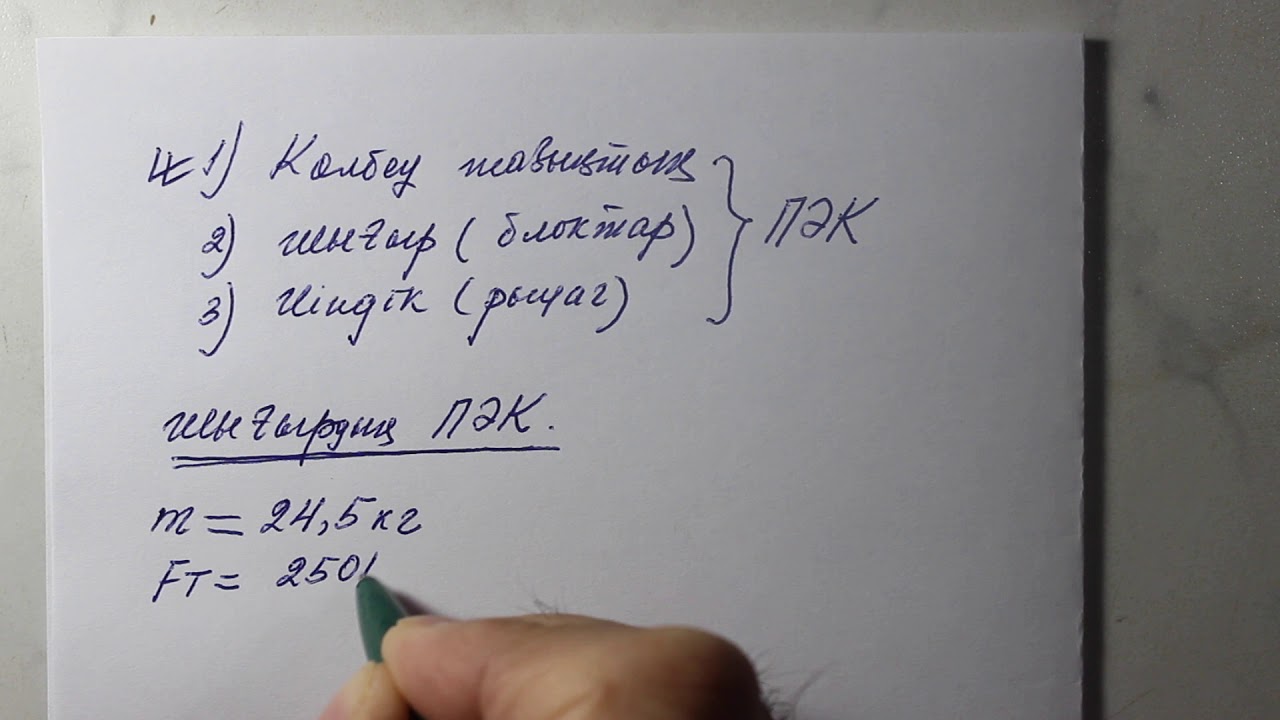 1) Көлбеу жазықтық } ПӘК
2) шығыр (блоктар)
3) Иіндік (рычаг)
Шығырдың ПӘК.
m = 24,5 кг
Fт = 250